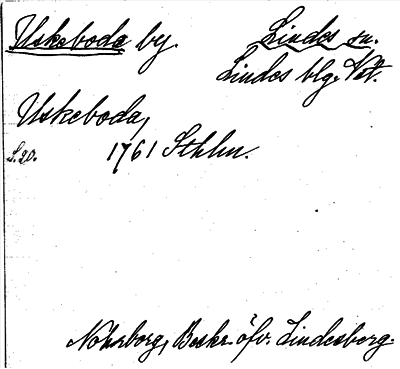 Uskeboda by. Lindes sn.
Lindes blg. Vstl.
Uskeboda,
S. 20. 1761 Sthlm.
Nohrborg, Beskr. öfv. Lindesberg.